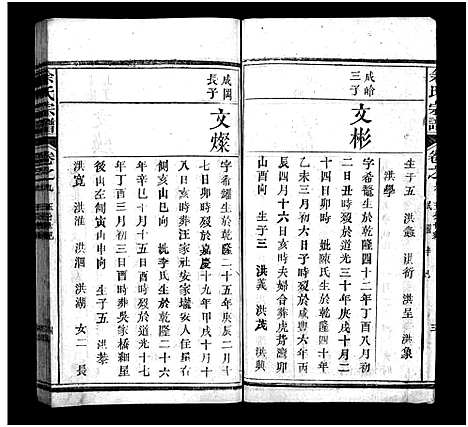 余氏宗譜
卷之
生子五 洪鑫 洪衢 洪呈 洪象
洪學
成哈
三子
文彬
字希鼇生於乾隆四十二年丁酉八月初
八日寅時歿於道光三十年庚戌十月二
十四日卯時 妣陳氏生於乾隆四十年
乙未三月初六日子時歿於咸豐六年丙
辰四月十六日亥時夫婦合葬虎背灣卯
山酉向 生子三 洪義 洪茂 洪興
成岡
長子
文燦
字希耀生於乾隆二十五年庚辰二月十
七日卯時歿於嘉慶十九年甲戌十月十
六日亥時葬汪家社安家壋安人住屋右
手午山子向 妣李氏生於乾隆二十六
年十一月十五日酉時歿於道光十七
年丁酉八月初三日酉時葬吳家橋細屋
後山左側寅山申向 生子五 洪蓁
洪寬 洪淮 洪涸 洪湖 女二 長
余氏宗譜
卷之九